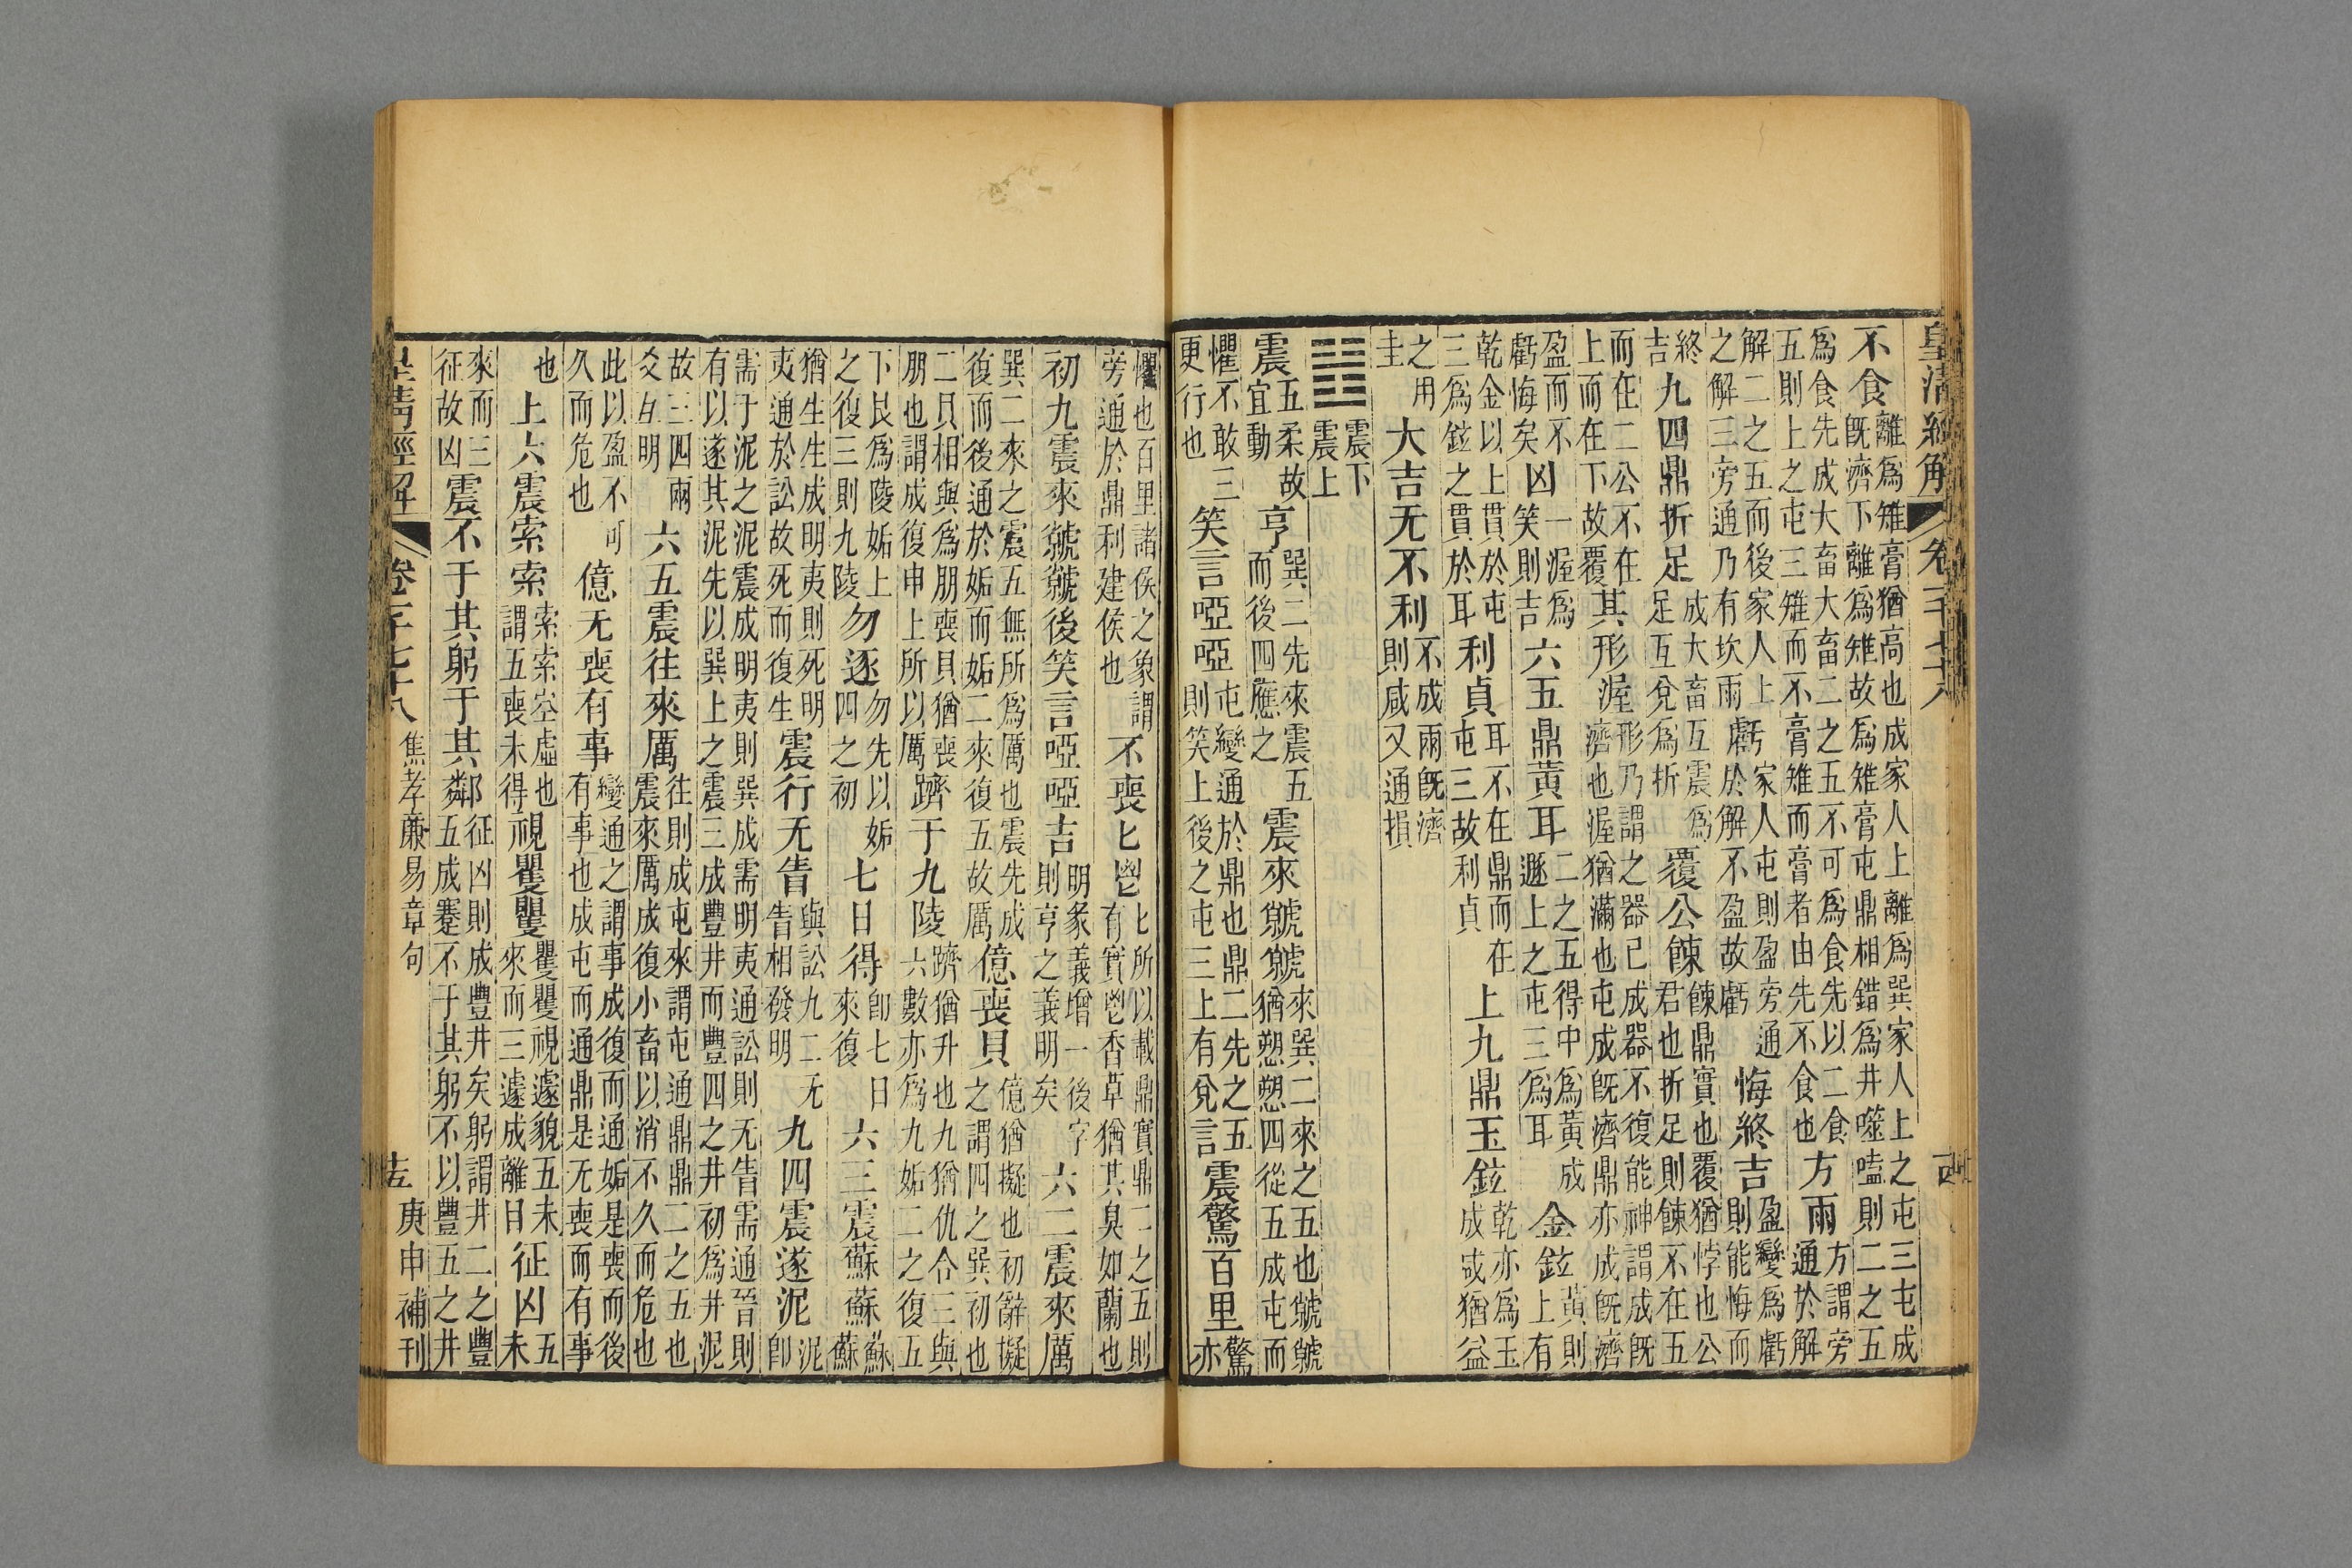 皇清經解 卷一千七十八 十四
不食離爲雉膏猶高也成家人上離爲巽家人上之屯三屯成
既濟下離爲雉故爲雉膏屯鼎相錯爲井噬嗑則二之五
爲食先成大畜大畜二之五不可爲食先以二食
五則上之屯三雉而不膏雉而膏者由先不食也方雨方謂旁
通於解
解二之五而後家人上
之解三旁通乃有坎雨虧家人屯則盈旁通
於解不盈故虧悔終吉盈變爲虧
則能悔而
終
吉九四鼎折足成大畜互震爲
足互兌爲折覆公餗餗鼎實也覆猶悖也公
君也折足則餗不在五
而在二公不在
上而在下故覆其形渥形乃謂之器已成器不復能神謂成既
濟也渥猶滿也屯成既濟鼎亦成既濟
盈而不
虧悔矣凶一渥爲
笑則吉六五鼎黃耳二之五得中爲黃成
遯上之屯三爲耳金鉉黃則
上有
乾金以上貫於屯
三爲鉉之貫於耳利貞耳不在鼎而在
屯三故利貞上九鼎玉鉉乾亦爲玉
成咸猶益
之用
圭大吉无不利不成兩既濟
則咸又通損
䷲震下
震上
震五柔故
宜動亨巽二先來震五
而後四應之震來虩虩來巽二來之五也虩虩
猶愬愬四從五成屯而
懼不敢三
更行也笑言啞啞屯變通於鼎也鼎二先之五
則笑上後之屯三上有兌言震驚百里驚
亦
懼也百里諸侯之象謂
旁通於鼎利建侯也不喪匕鬯匕所以載鼎實鼎二之五則
有實鬯香草猶其臭如蘭也
初九震來虩虩後笑言啞啞吉明彖義增一後字
則亨之義明矣六二震來厲
巽二來之震五無所爲厲也震先成
復而後通於姤而姤二來復五故厲億喪貝億猶擬也初辭擬
之謂四之巽初也
二貝相與爲朋喪貝猶喪
朋也謂成復申上所以厲躋于九陵躋猶升也九猶仇合三與
六數亦爲九姤二之復五
下艮爲陵姤上
之復三則九陵勿逐勿先以姤
四之初七日得卽七日
來復六三震蘇蘇蘇
蘇
猶生生成明夷則死明
夷通於訟故死而復生震行无眚與訟九二无
眚相發明九四震遂泥泥
卽
需于泥之泥震成明夷則巽成需明夷通訟則无眚需通晉則
有以遂其泥先以巽上之震三成豐井而豐四之井初爲井泥
故三四兩
爻互明六五震往來厲往則成屯來謂屯通鼎鼎二之五也
震來厲成復小畜以消不久而危也
此以盈不可
久而危也億无喪有事變通之謂事成復而通姤是喪而後
有事也成屯而通鼎是无喪而有事
也上六震索索索索空虛也
謂五喪未得視矍矍矍矍視遽貌五未
來而三遽成離日征凶五
未
來而三
征故凶震不于其躬于其鄰征凶則成豐井矣躬謂井二之豐
五成蹇不于其躬不以豐五之井
皇清經解 卷一千七十八 焦孝廉易章句 十五 庚申補刊